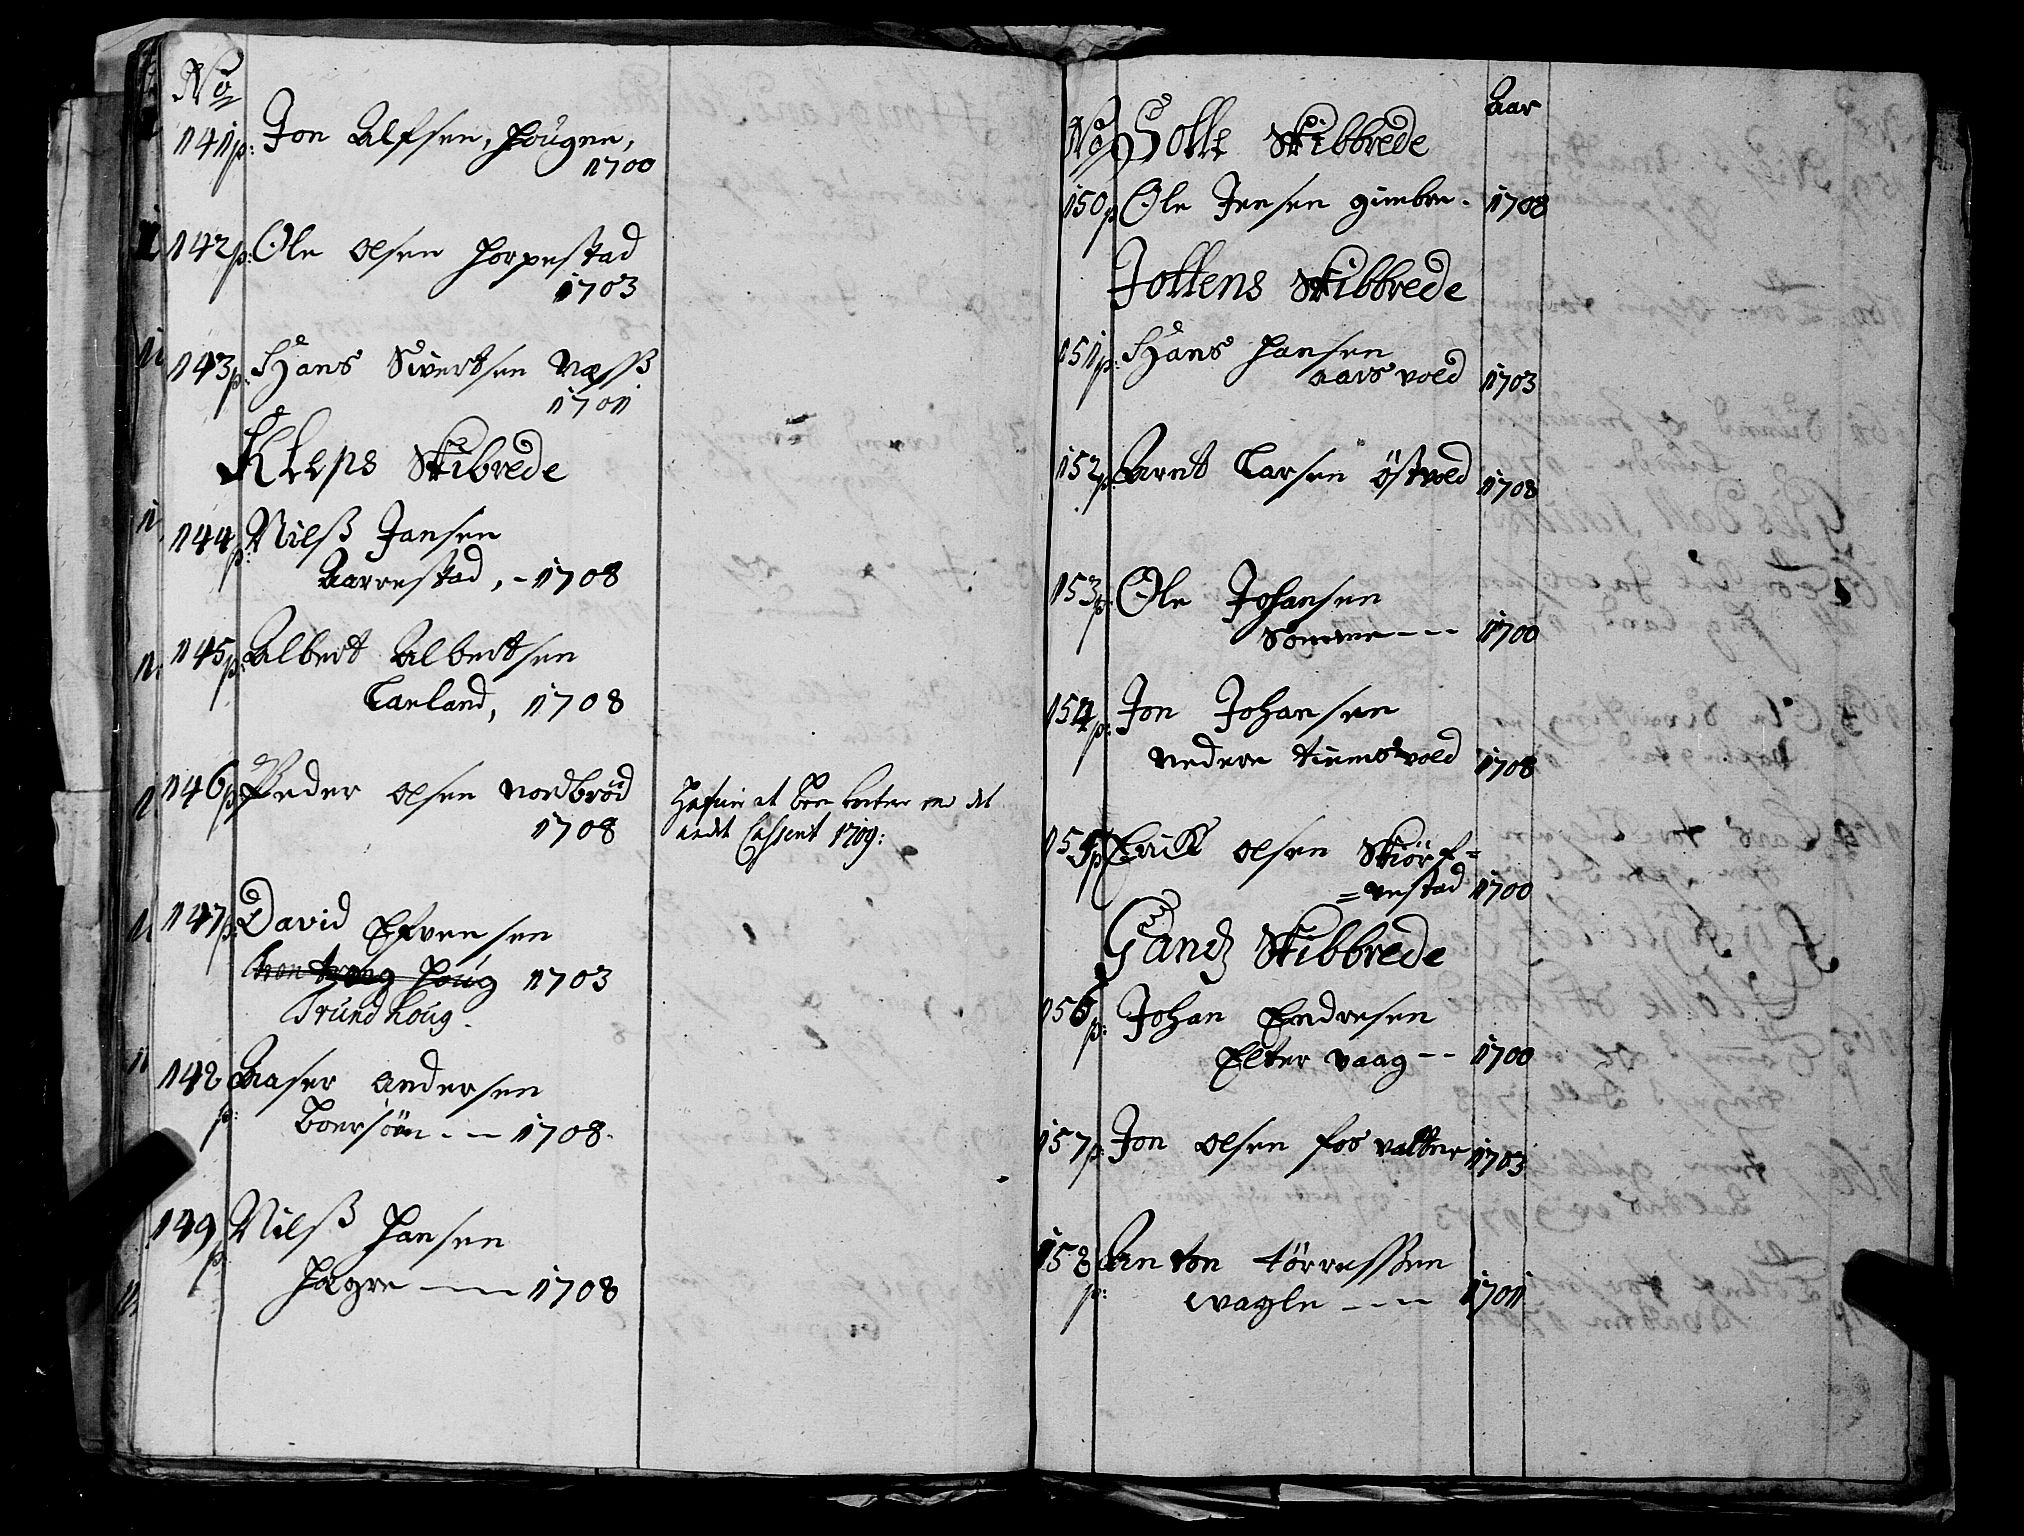 No
141 p: Jon Alfsen, Hougen,
1700
142 p: Ole Olsen Horpestad
1703
143 p: Hans Sivertsen Næss
1701
Kleps Skibrede
144 p: Nilß Jansen
Aarrestad, - 1708
145 p: Albert Albertsen
Laeland, 1708
146 p: Peder Olsen Nordbrød
1708
at Boe det
andt 1709:
147 p: David Efvensen
Houg 1703
Trundhoug.
148 p: Aaser Andersen
Boersøen -- 1708.
149 p: Nilß Hansen
Høgre --- 1708
Aar
No Solle Skibbrede
150 p Ole Jensen gimbre. 1708
Joktens Skibbrede
151 p: Hans Hansen
Aarsvold 1703
152 p: Aarnt Larsen Östvold 1708
153 p: Ole Johansen
Somme --- 1700
154 p: Jon Johansen
nedere tiemsvold 1708
155 p Erick Olsen Skiöref=
=vestad 1700
Gandz Skibbrede
156 p: Johan Endresen
Elter vaag -- 1700
157 p: Jon Olsen fos vattne 1703
158 p: Anton Törressen
wagle --- 1701